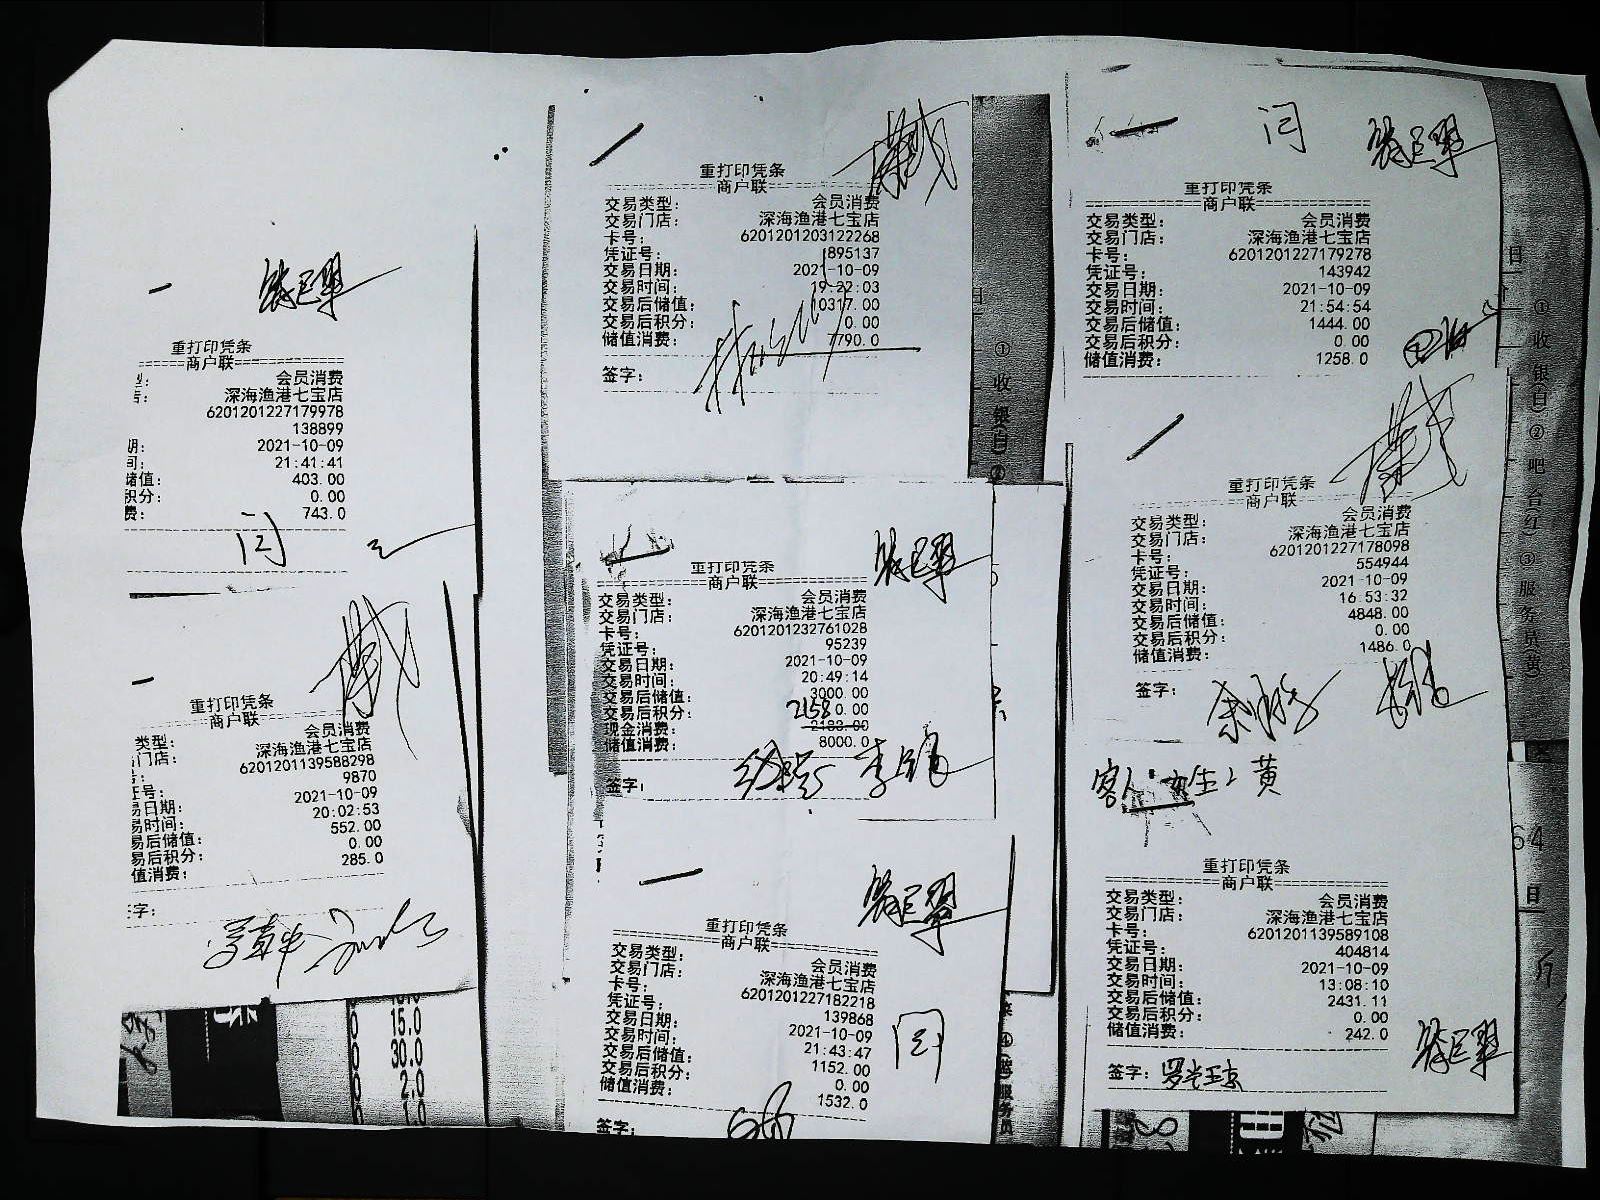 重打印凭条
商户联
会员消费
深海渔港七宝店
6201201227179978
138899
2021-10-09
21:41:41
储值: 403.00
积分: 0.00
费: 743.0
闫
重打印凭条
商户联
类型: 会员消费
门店: 深海渔港七宝店
6201201139588298
证号: 9870
易日期: 2021-10-09
易时间: 20:02:53
易后储值: 552.00
易后积分: 0.00
值消费: 285.0
字:
重打印凭条
商户联
交易类型: 会员消费
交易门店: 深海渔港七宝店
卡号: 6201201203122268
凭证号: 895137
交易日期: 2021-10-09
交易时间: 19:22:03
交易后储值: 10317.00
交易后积分: 0.00
储值消费: 7790.0
签字:
重打印凭条
商户联
交易类型: 会员消费
交易门店: 深海渔港七宝店
卡号: 6201201232761028
凭证号: 95239
交易日期: 2021-10-09
交易时间: 20:49:14
交易后储值: 3000.00
交易后积分: 0.00
2158
现金消费: 2183.00
储值消费: 8000.0
签字:
重打印凭条
商户联
交易类型: 会员消费
交易门店: 深海渔港七宝店
卡号: 6201201227182218
凭证号: 139868
交易日期: 2021-10-09
交易时间: 21:43:47
交易后储值: 1152.00
交易后积分: 0.00
储值消费: 1532.0
签字:
闫
闫
重打印凭条
商户联
交易类型: 会员消费
交易门店: 深海渔港七宝店
卡号: 6201201227179278
凭证号: 143942
交易日期: 2021-10-09
交易时间: 21:54:54
交易后储值: 1444.00
交易后积分: 0.00
储值消费: 1258.0
重打印凭条
商户联
交易类型: 会员消费
交易门店: 深海渔港七宝店
卡号: 6201201227178098
凭证号: 554944
交易日期: 2021-10-09
交易时间: 16:53:32
交易后储值: 4848.00
交易后积分: 0.00
储值消费: 1486.0
签字:
重打印凭条
商户联
交易类型: 会员消费
交易门店: 深海渔港七宝店
卡号: 6201201139589108
凭证号: 404814
交易日期: 2021-10-09
交易时间: 13:08:10
交易后储值: 2431.11
交易后积分: 0.00
储值消费: 242.0
签字:
① 收银(白) ② 吧台(红) ③ 服务员(黄)
① 收银(白) ②
15.0
30.0
2.0
1.0
64
日